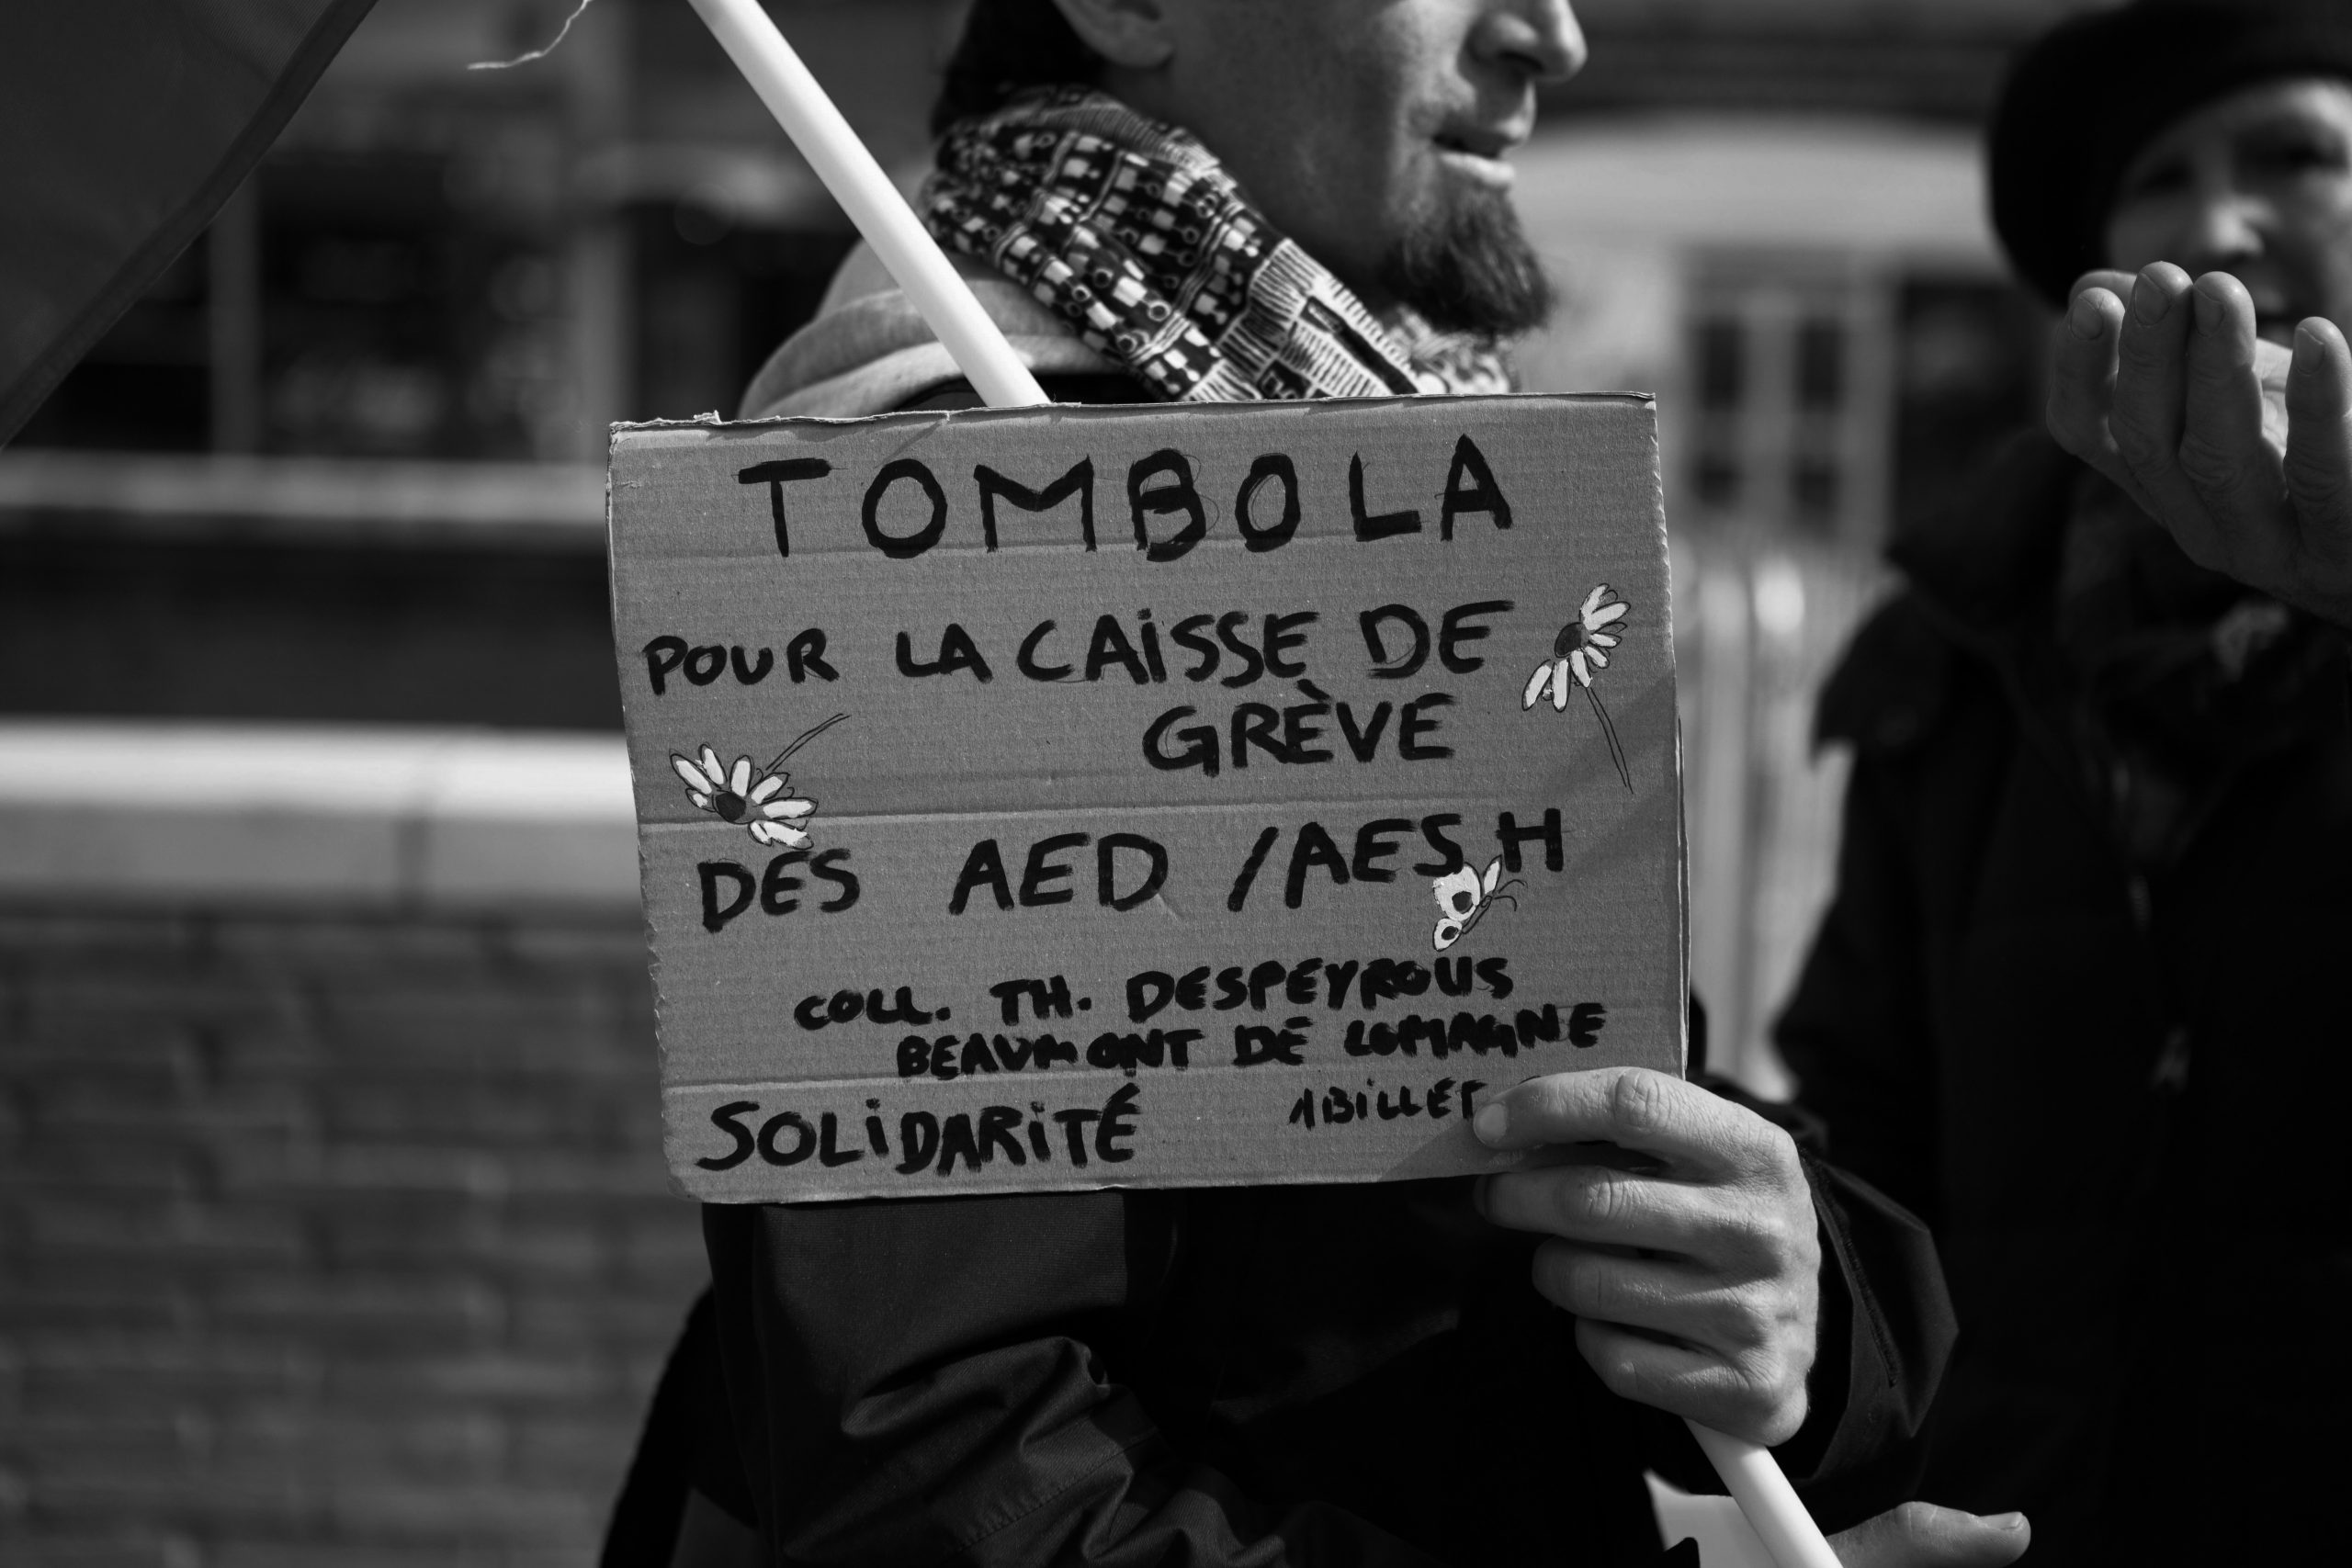 TOMBOLA
POUR LA CAISSE DE
GRÈVE
DES AED /AESH
COLL. TH. DESPEYROUS
BEAUMONT DE LOMAGNE
SOLIDARITÉ 1 BILLET